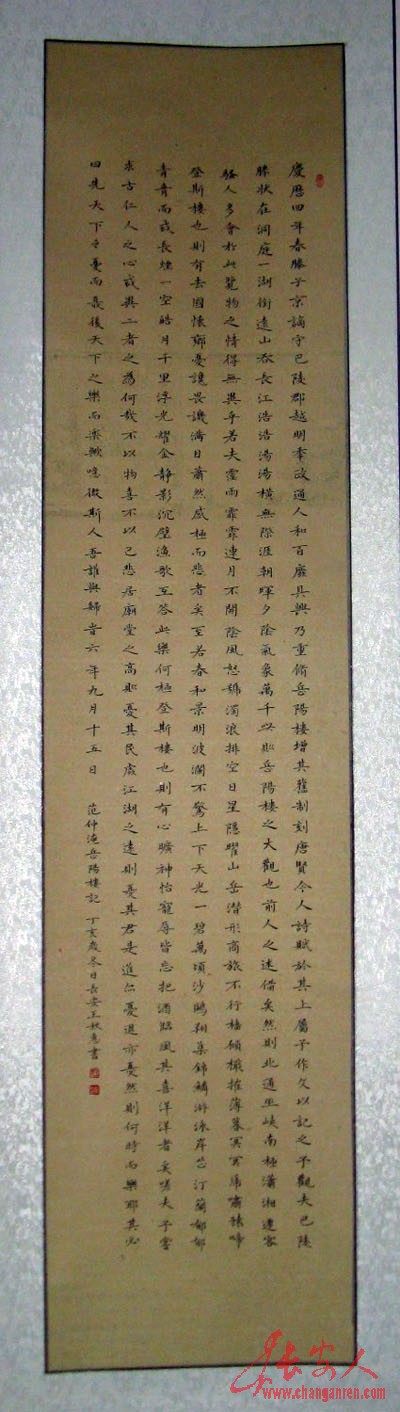 慶曆四年春滕子京謫守巴陵郡越明年政通人和百廢具興乃重脩岳陽樓增其舊制刻唐賢今人詩賦於其上屬予作文以記之予觀夫巴陵
勝狀在洞庭一湖銜遠山吞長江浩浩湯湯橫無際涯朝暉夕陰氣象萬千此則岳陽樓之大觀也前人之述備矣然則北通巫峽南極瀟湘遷客
騷人多會於此覽物之情得無異乎若夫霪雨霏霏連月不開陰風怒號濁浪排空日星隱曜山岳潛形商旅不行檣傾檝摧薄暮冥冥虎嘯猿啼
登斯樓也則有去國懷鄉憂讒畏譏滿目蕭然感極而悲者矣至若春和景明波瀾不驚上下天光一碧萬頃沙鷗翔集錦鱗游泳岸芷汀蘭郁郁
青青而或長煙一空皓月千里浮光耀金靜影沉璧漁歌互答此樂何極登斯樓也則有心曠神怡寵辱皆忘把酒臨風其喜洋洋者矣嗟夫予嘗
求古仁人之心或異二者之為何哉不以物喜不以己悲居廟堂之高則憂其民處江湖之遠則憂其君是進亦憂退亦憂然則何時而樂耶其必
曰先天下之憂而憂後天下之樂而樂歟噫微斯人吾誰與歸旹六年九月十五日
范仲淹岳陽樓記 丁亥歲冬日長安王秋書
长安人
www.changanren.com